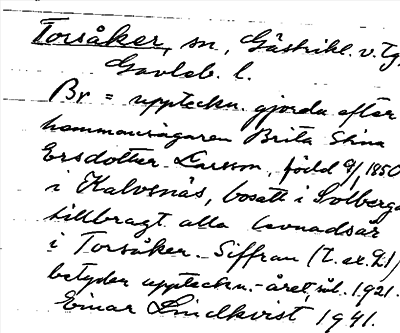 Torsåker, sn, Gästrikl. v. tg.
Gävleb. l.
Br = uppteckn. gjorda efter
hemmansägaren Brita Stina
Ersdotter-Larsson, född 9/1850
i Kalvsnäs, bosatt i Solberga
tillbragt alla levnadsår
i Torsåker. Siffran (t. ex. 21)
betyder uppteckn.-året, sål. 1921.
Einar Lindkvist 1941.